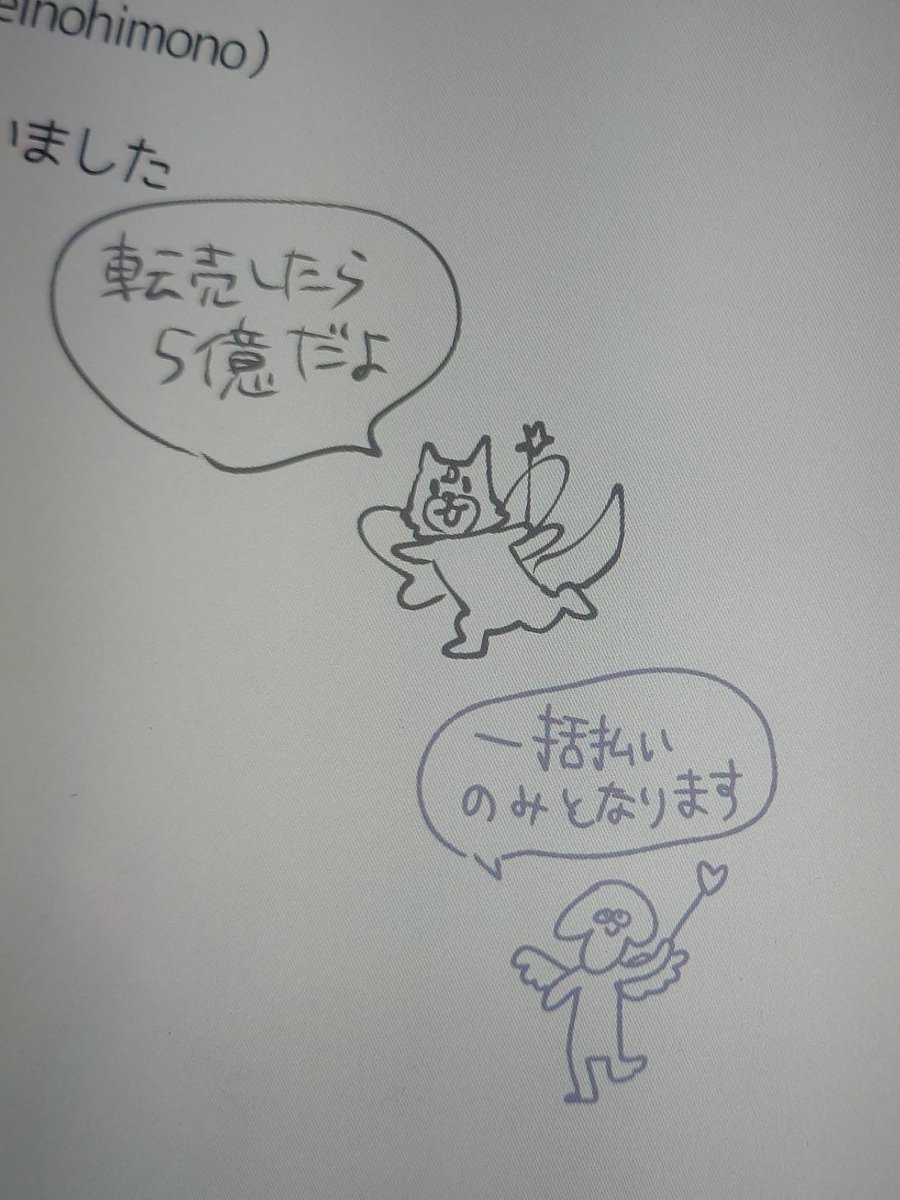 einohimono)
いました
転売したら
5億だよ
一括払い
のみとなります